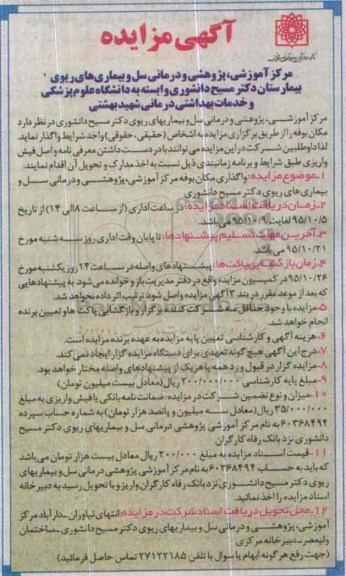 آگهی مزایده
مرکز آموزشی، پژوهشی و درمانی سل و بیماری های ریوی
بیمارستان دکتر مسیح دانشوری وابسته به دانشگاه علوم پزشکی
و خدمات بهداشتی درمانی شهید بهشتی
مرکز آموزشی، پژوهشی و درمانی سل و بیماریهای ریوی دکتر مسیح دانشوری در نظر دارد
مکان بوفه را از طریق برگزاری مزایده به اشخاص (حقیقی، حقوقی) واجد شرایط واگذار نماید.
لذا داوطلبین شرکت در این مزایده می توانند با در دست داشتن معرفی نامه و اصل فیش
واریزی طبق شرایط و برنامه زمانبندی ذیل نسبت به اخذ مدارک و تحویل آن اقدام نمایند.
۱-موضوع مزایده: واگذاری مکان بوفه مرکز آموزشی، پژوهشی و درمانی سل و
بیماری های ریوی دکتر مسیح دانشوری
۲-زمان دریافت اسناد مزایده: در ساعت اداری (از ساعت ۸ الی ۱۴) از تاریخ
۹۵/۱۰/۵ لغایت ۹۵/۱۰/۹ می باشد.
۳-آخرین مهلت تسلیم پیشنهادها: تا پایان وقت اداری روز سه شنبه مورخ
۹۵/۱۰/۲۱ می باشد.
۴-زمان بازگشایی پاکت ها: پیشنهادهای واصله در ساعت ۱۴ روز یکشنبه مورخ
۹۵/۱۰/۲۶ در کمیسیون مزایده واقع در دفتر مدیریت باز و خوانده می شود. به پیشنهادهایی
که بعد از موعد مقرر در بند ۳ آگهی مزایده واصل شود ترتیب اثر داده نخواهد شد.
۵-مزایده با وجود حداقل سه شرکت کننده برگزار و بازگشایی پاکت ها و تعیین برنده
انجام خواهد شد.
۶-هزینه آگهی و کارشناسی تعیین پایه مزایده به عهده برنده مزایده است.
۷-درج این آگهی هیچ گونه تعهدی برای دستگاه مزایده گزار ایجاد نمی کند.
۸-مزایده گزار در قبول و رد همه یا هر یک از پیشنهادهای واصله مختار خواهد بود.
۹-مبلغ پایه کارشناسی ۲۰۰/۰۰۰/۰۰۰ ریال (معادل بیست میلیون تومان)
۱۰-میزان و نوع تضمین شرکت در مزایده: ضمانت نامه بانکی یا فیش واریزی به مبلغ
۳۵/۰۰۰/۰۰۰ ریال (معادل سه میلیون و پانصد هزار تومان) به شماره حساب سپرده
۶۰۳۶۸۴۹۴ به نام مرکز آموزشی پژوهشی درمانی سل و بیماریهای ریوی دکتر مسیح
دانشوری نزد بانک رفاه کارگران
۱۱-قیمت اسناد مزایده به مبلغ ۲۰۰/۰۰۰ ریال معادل بیست هزار تومان می باشد
که باید به حساب ۶۰۳۶۸۴۹۴ به نام مرکز آموزشی پژوهشی درمانی سل و بیماریهای
ریوی دکتر مسیح دانشوری نزد بانک رفاه کارگران واریز و با تحویل رسید به دبیرخانه
اسناد مزایده را اخذ نمائید.
۱۲-محل تحویل و دریافت اسناد شرکت در مزایده: انتهای نیاوران - دارآباد مرکز
آموزشی، پژوهشی و درمانی سل و بیماریهای ریوی دکتر مسیح دانشوری - ساختمان
ولیعصر - دبیرخانه مرکزی
(جهت رفع هر گونه ابهام یا سوال با تلفن ۲۷۱۲۲۱۸۵ تماس حاصل فرمائید)